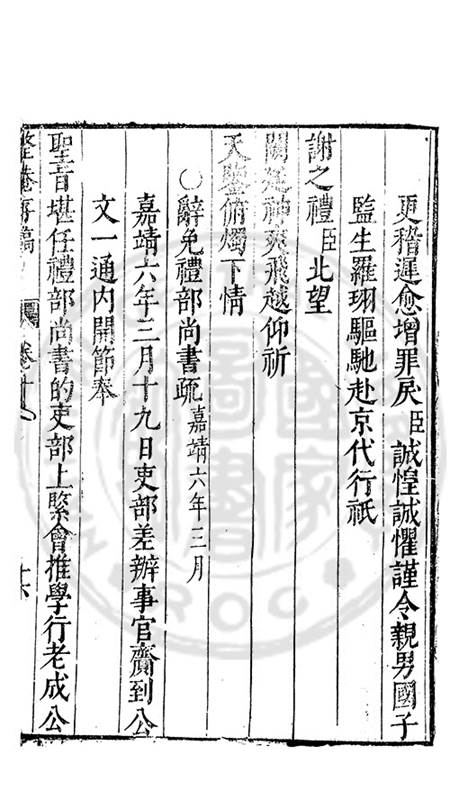 更稽遲愈增罪戾臣誠惶誠懼謹令親男國子
監生羅珝驅馳赴京代行祇
謝之禮臣北望
闕廷神爽飛越仰祈
天鑒俯燭下情
○辭免禮部尚書疏嘉靖六年三月
嘉靖六年三月十九日吏部差辦事官齎到公
文一通內開節奉
聖旨堪任禮部尚書的吏部上緊會推學行老成公
整菴存稿 卷十